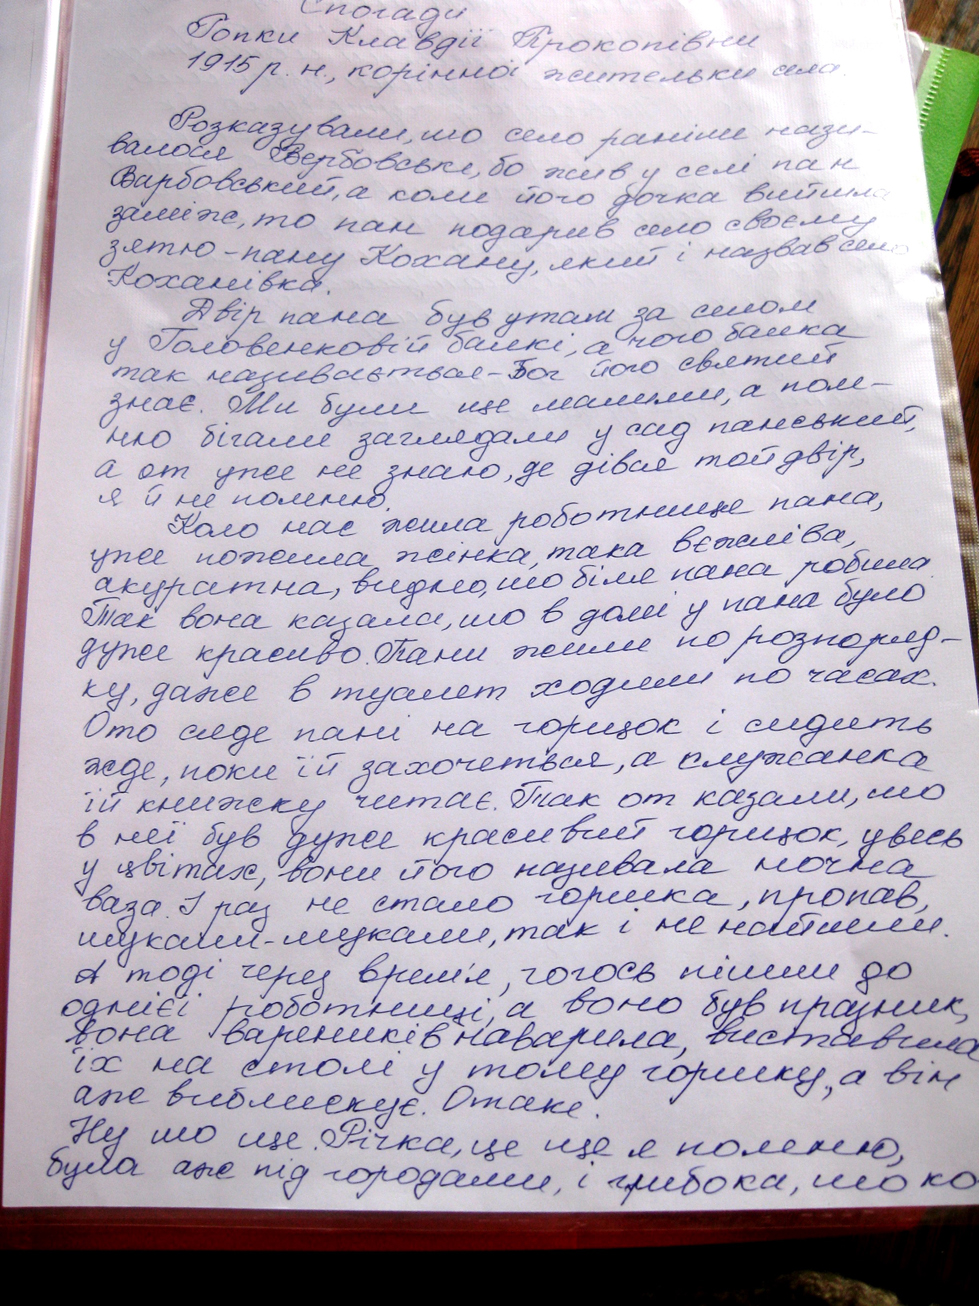 Спогади
Гопки Клавдії Прокопівни
1915 р. н., корінної жительки села.
Розказували, шо село раніше нази-
валося Вербовське, бо жив у селі пан
Варбовський, а коли його дочка вийшла
заміж, то пан подарив село своєму
зятю - пану Кохану, який і назвав село
Коханівка.
Двір пана був утам за селом
у Головенковій балкі, а чого балка
так називається - Бог його святий
знає. Ми були ще малими, а пом-
ню бігали заглядали у сад панський,
а от уже не знаю, де дівся той двір,
я й не помню.
Коло нас жила роботниця пана,
уже пожила жінка, така вєжліва,
акуратна, видно, шо біля пана робила.
Так вона казала, шо в домі у пана було
дуже красиво. Пани жили по розпоряд-
ку, даже в туалет ходили по часах.
Ото сяде пані на горщок і сидить
жде, поки їй захочеться, а служанка
їй книжку читає. Так от казали, шо
в неї був дуже красивий горщок, увесь
у цвітах, вони його називала ночна
ваза. І раз не стало горшка, пропав,
шукали-шукали, так і не найшли.
А тоді через врем'я, чогось пішли до
однієї роботниці, а воно був празник,
вона вареників наварила, виставила
їх на столі у тому горшку, а він
аж виблискує. Отаке.
Ну шо ще. Річка, це ще я помню,
була аж під городами, і глибока, шо ко